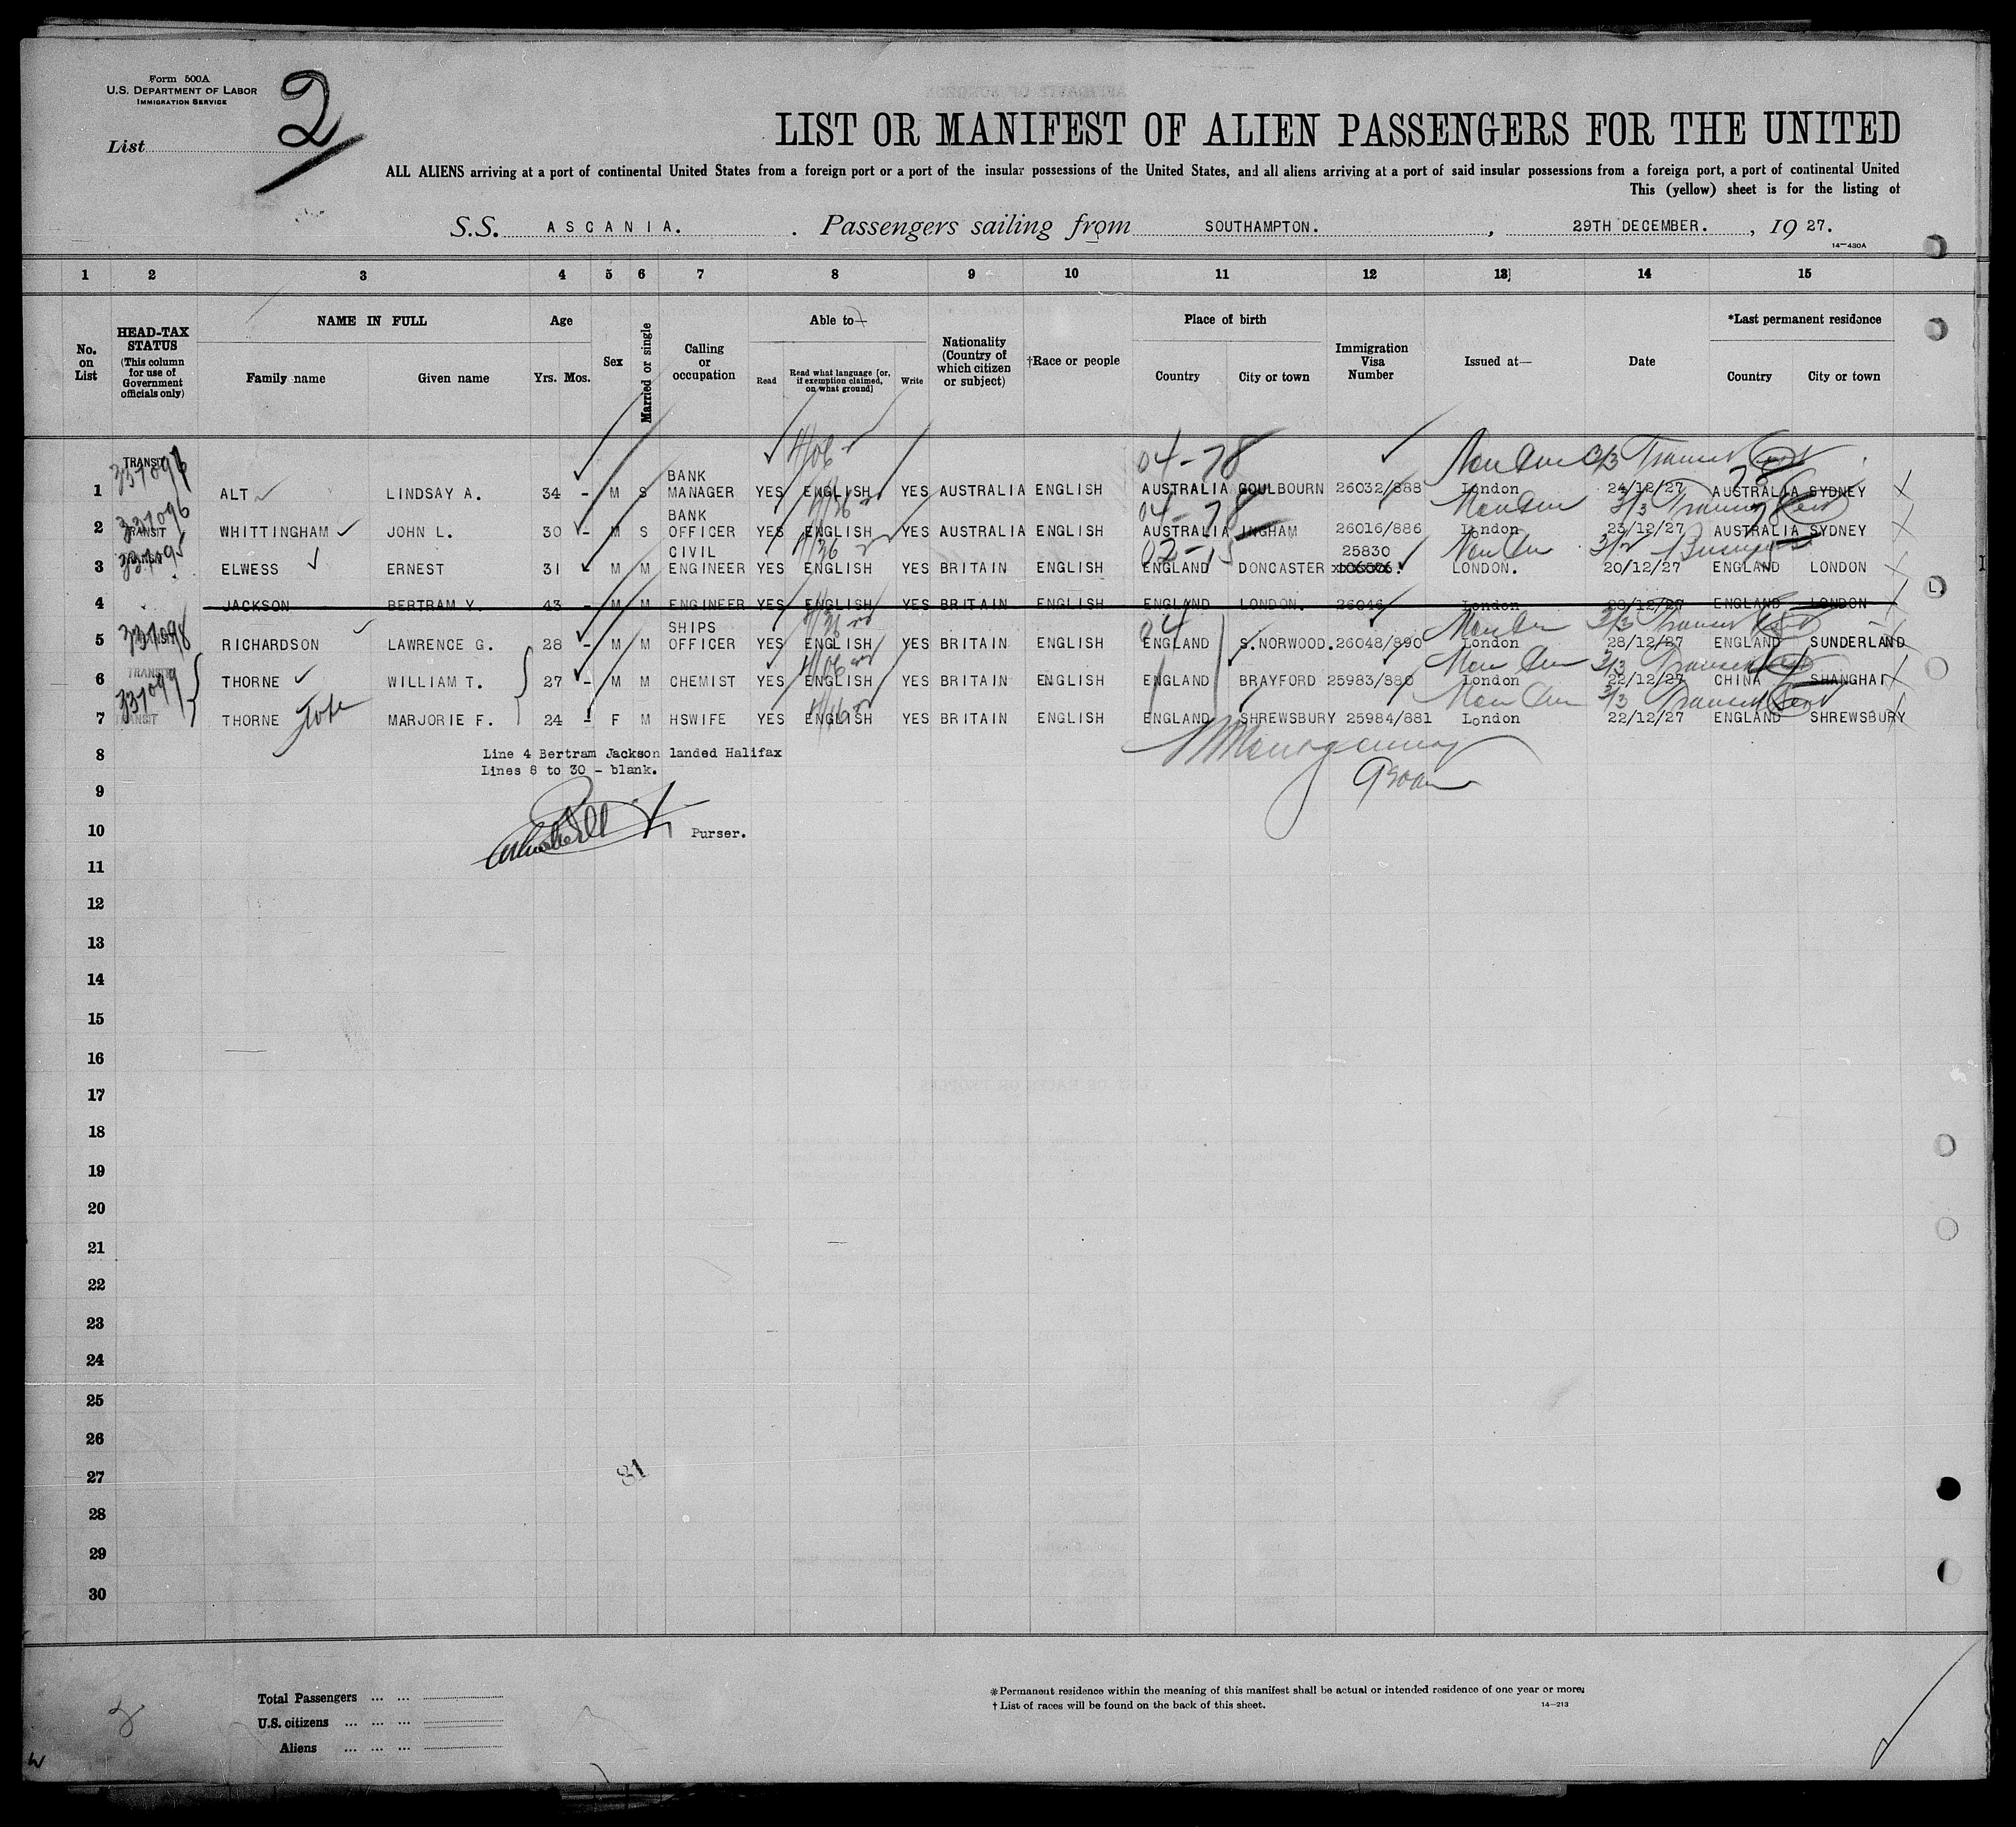 Form 500A
U.S. DEPARTMENT OF LABOR
IMMIGRATION SERVICE
List 2
LIST OR MANIFEST OF ALIEN PASSENGERS FOR THE UNITED
ALL ALIENS arriving at a port of continental United States from a foreign port or a port of the insular possessions of the United States, and all aliens arriving at a port of said insular possessions from a foreign port, a port of continental United
This (yellow) sheet is for the listing of
S.S. ASCANIA. Passengers sailing from SOUTHAMPTON. , 29TH DECEMBER. , 19 27.
14—430A
1 2 3 4 5 6 7 8 9 10 11 12 13 14 15
No. on List
HEAD-TAX STATUS (This column for use of Government officials only)
NAME IN FULL
Family name Given name
Age
Yrs. Mos.
Sex
Married or single
Calling or occupation
Able to—
Read Read what language [or, if exemption claimed, on what ground] Write
Nationality (Country of which citizen or subject)
†Race or people
Place of birth
Country City or town
Immigration Visa Number
Issued at—
Date
*Last permanent residence
Country City or town
04-78
1 TRANSIT ALT LINDSAY A. 34 - M S BANK MANAGER YES ENGLISH YES AUSTRALIA ENGLISH AUSTRALIA GOULBOURN 26032/888 London 24/12/27 AUSTRALIA SYDNEY
04-78
2 337096 TRANSIT WHITTINGHAM JOHN L. 30 - M S BANK OFFICER YES ENGLISH YES AUSTRALIA ENGLISH AUSTRALIA INGHAM 26016/886 London 23/12/27 AUSTRALIA SYDNEY
02-15
3 ELWESS ERNEST 31 M M CIVIL ENGINEER YES ENGLISH YES BRITAIN ENGLISH ENGLAND DONCASTER 25830 LONDON. 20/12/27 ENGLAND LONDON
4 JACKSON BERTRAM Y. 43 - M M ENGINEER YES ENGLISH YES BRITAIN ENGLISH ENGLAND LONDON. 26046 London 28/12/27 ENGLAND LONDON
5 337098 RICHARDSON LAWRENCE G. 28 - M M SHIPS OFFICER YES ENGLISH YES BRITAIN ENGLISH ENGLAND S.NORWOOD. 26048/890 London 28/12/27 ENGLAND SUNDERLAND
6 TRANSIT 337099 THORNE WILLIAM T. 27 - M M CHEMIST YES ENGLISH YES BRITAIN ENGLISH ENGLAND BRAYFORD 25983/880 London 22/12/27 CHINA SHANGHAI
7 THORNE MARJORIE F. 24 - F M HSWIFE YES ENGLISH YES BRITAIN ENGLISH ENGLAND SHREWSBURY 25984/881 London 22/12/27 ENGLAND SHREWSBURY
8 Line 4 Bertram Jackson landed Halifax
Lines 8 to 30 - blank.
9
10 Purser.
11
12
13
14
15
16
17
18
19
20
21
22
23
24
25
26
27 31
28
29
30
Total Passengers ... ...
U.S. citizens ... ... ...
Aliens ... ... ...
*Permanent residence within the meaning of this manifest shall be actual or intended residence of one year or more.
† List of races will be found on the back of this sheet. 14—213